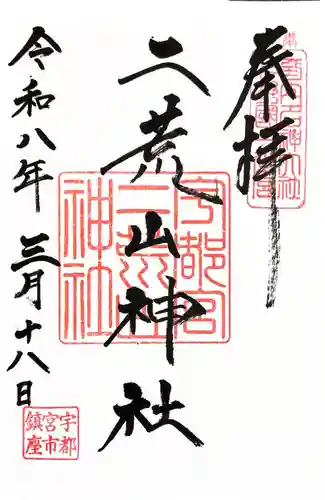 奉拝
二荒山神社
宇都宮
二荒山
神社
令和八年 三月十八日
宇都
宮市
鎮座